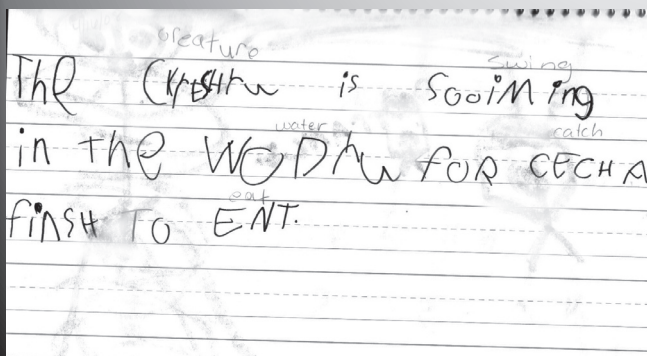 creature swing
The is SooiMing
water catch
in the WODhu foR CECH A
eat
finSH TO ENT.